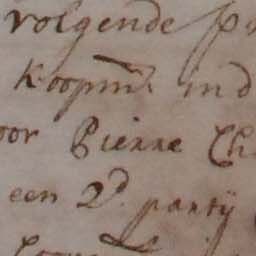 volgende
Koopm. in d
oor Pierre Ch
een 2d. partij